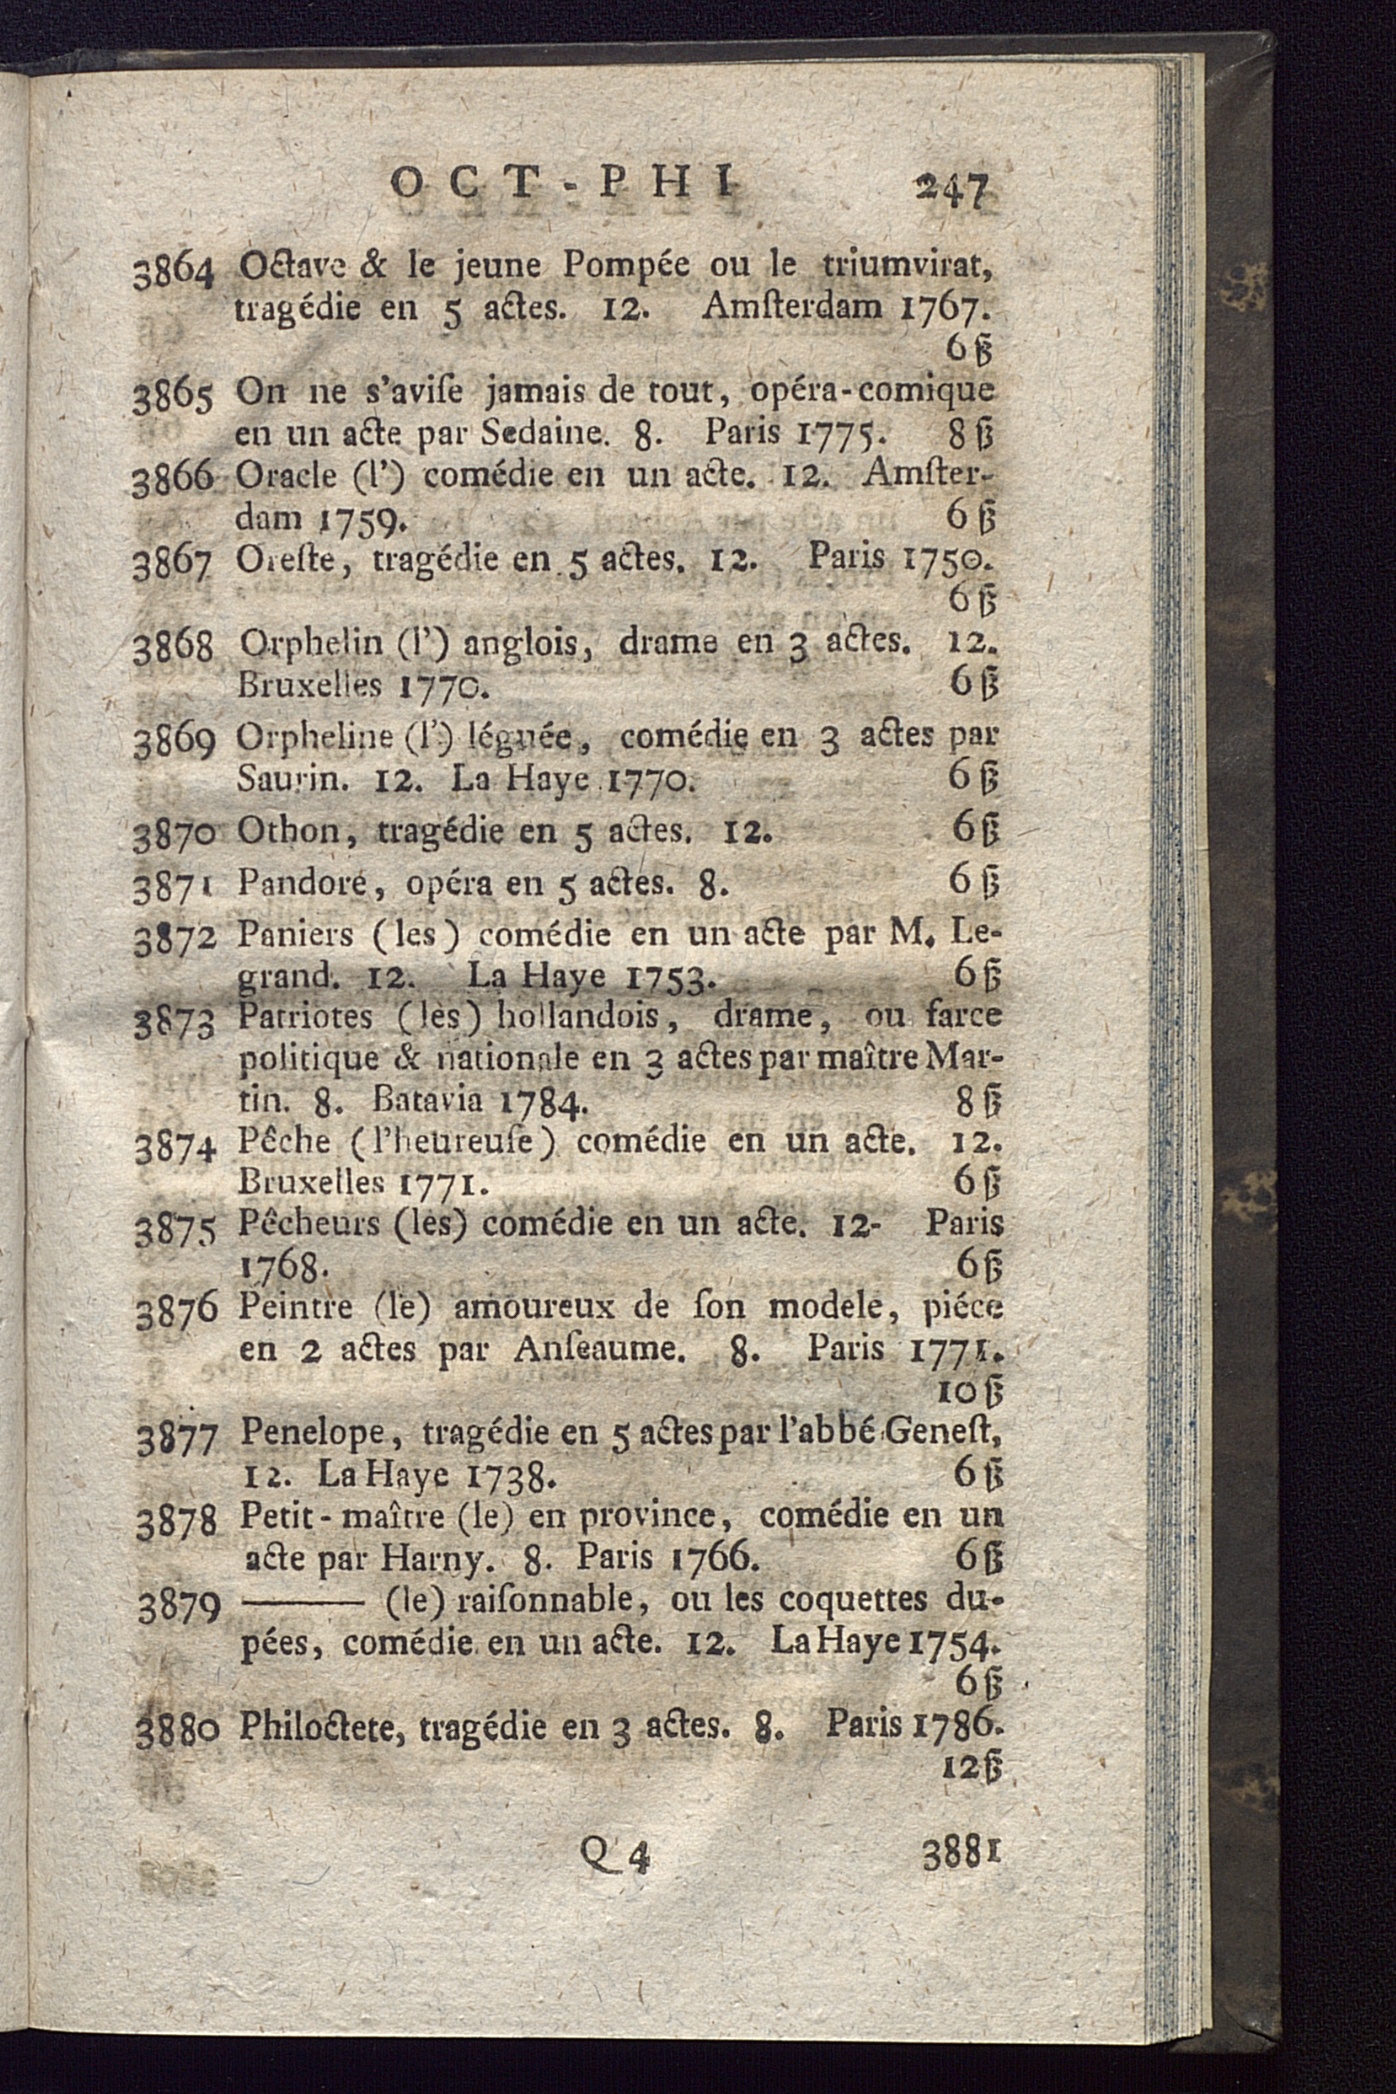 OCT-PHI 247
3864 Octave & le jeune Pompée ou le triumvirat,
tragédie en 5 actes. 12. Amſterdam 1767.
6 ß
3865 On ne s'aviſe jamais de tout, opéra-comique
en un acte par Sedaine. 8. Paris 1775. 8 ß
3866 Oracle (l') comédie en un acte. 12. Amſter-
dam 1759. 6 ß
3867 Oreſte, tragédie en 5 actes. 12. Paris 1750.
6 ß
3868 Orphelin (l') anglois, drame en 3 actes. 12.
Bruxelles 1770. 6 ß
3869 Orpheline (l') léguée, comédie en 3 actes par
Saurin. 12. La Haye 1770. 6 ß
3870 Othon, tragédie en 5 actes. 12. 6 ß
3871 Pandore, opéra en 5 actes. 8. 6 ß
3872 Paniers (les) comédie en un acte par M. Le-
grand. 12. La Haye 1753. 6 ß
3873 Patriotes (les) hollandois, drame, ou farce
politique & nationale en 3 actes par maître Mar-
tin. 8. Batavia 1784. 8 ß
3874 Pêche (l'heureuſe) comédie en un acte. 12.
Bruxelles 1771. 6 ß
3875 Pêcheurs (les) comédie en un acte. 12- Paris
1768. 6 ß
3876 Peintre (le) amoureux de ſon modele, piéce
en 2 actes par Anſeaume. 8. Paris 1771.
10 ß
3877 Penelope, tragédie en 5 actes par l'abbé Geneſt,
12. La Haye 1738. 6 ß
3878 Petit-maître (le) en province, comédie en un
acte par Harny. 8. Paris 1766. 6 ß
3879 ——— (le) raiſonnable, ou les coquettes du-
pées, comédie en un acte. 12. La Haye 1754.
6 ß
3880 Philoctete, tragédie en 3 actes. 8. Paris 1786.
12 ß
Q 4 3881